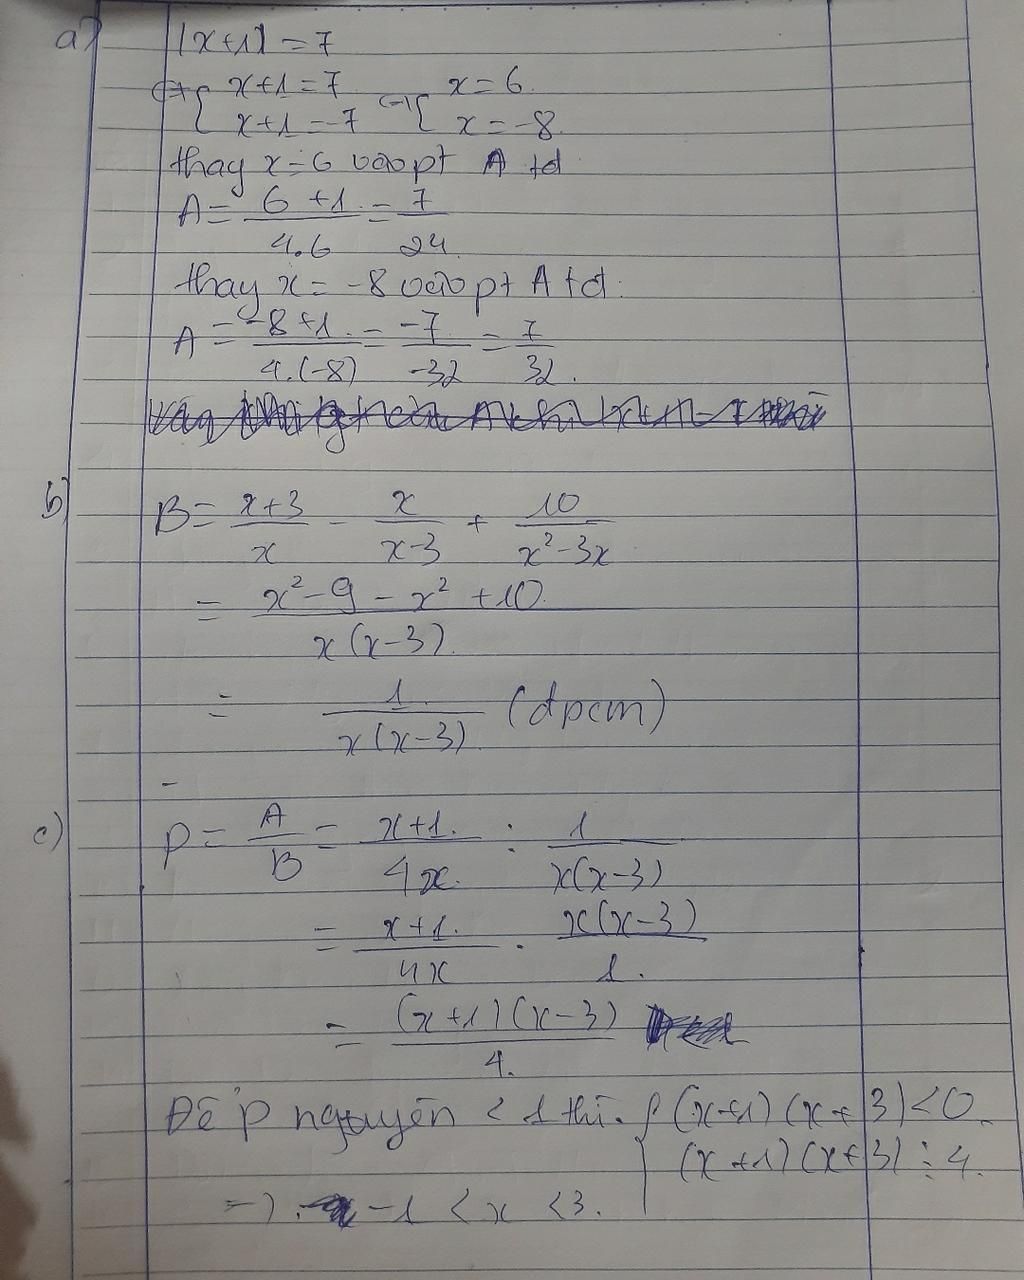 a) |x+1| = 7
<=> { x+1 = 7 <=> { x = 6
x+1 = -7 x = -8
thay x = 6 vào pt A tđ
A = (6+1)/(4.6) = 7/24
thay x = -8 vào pt A tđ:
A = (-8+1)/(4.(-8)) = -7/-32 = 7/32.
b) B = (x+3)/x - x/(x-3) + 10/(x²-3x)
= (x²-9-x²+10)/(x(x-3))
= 1/(x(x-3)) (đpcm)
-
c) P = A/B = (x+1)/(4x) : 1/(x(x-3))
= (x+1)/(4x) . (x(x-3))/1.
= ((x+1)(x-3))/4.
Để P nguyên < 1 thì { (x+1)(x+3) < 0
(x+1)(x+3) ⋮ 4.
=> -1 < x < 3.